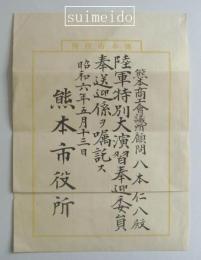 suimeido
熊本商工會議所顧問 八木仁八殿
陸軍特別大演習奉迎委員
奉送迎係ヲ嘱託ス
昭和六年五月十三日
熊本市役所